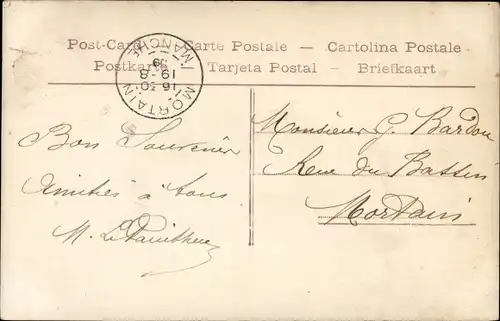 Post-Card — Carte Postale — Cartolina Postale
Postkarte — Tarjeta Postal — Briefkaart
MORTAIN
MANCHE
16 30
19 - 8
09
Bon Souvenir
Amitiés à tous
M.
Monsieur G. Bardou
Rue du Bassin
Mortain